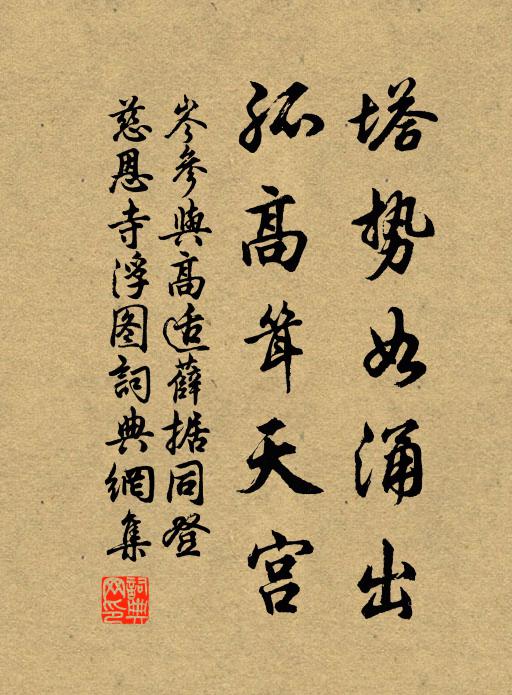 塔势如涌出
孤高耸天宫
岑參與高适薛据同登
慈恩寺浮图詞典網集
詞典网印